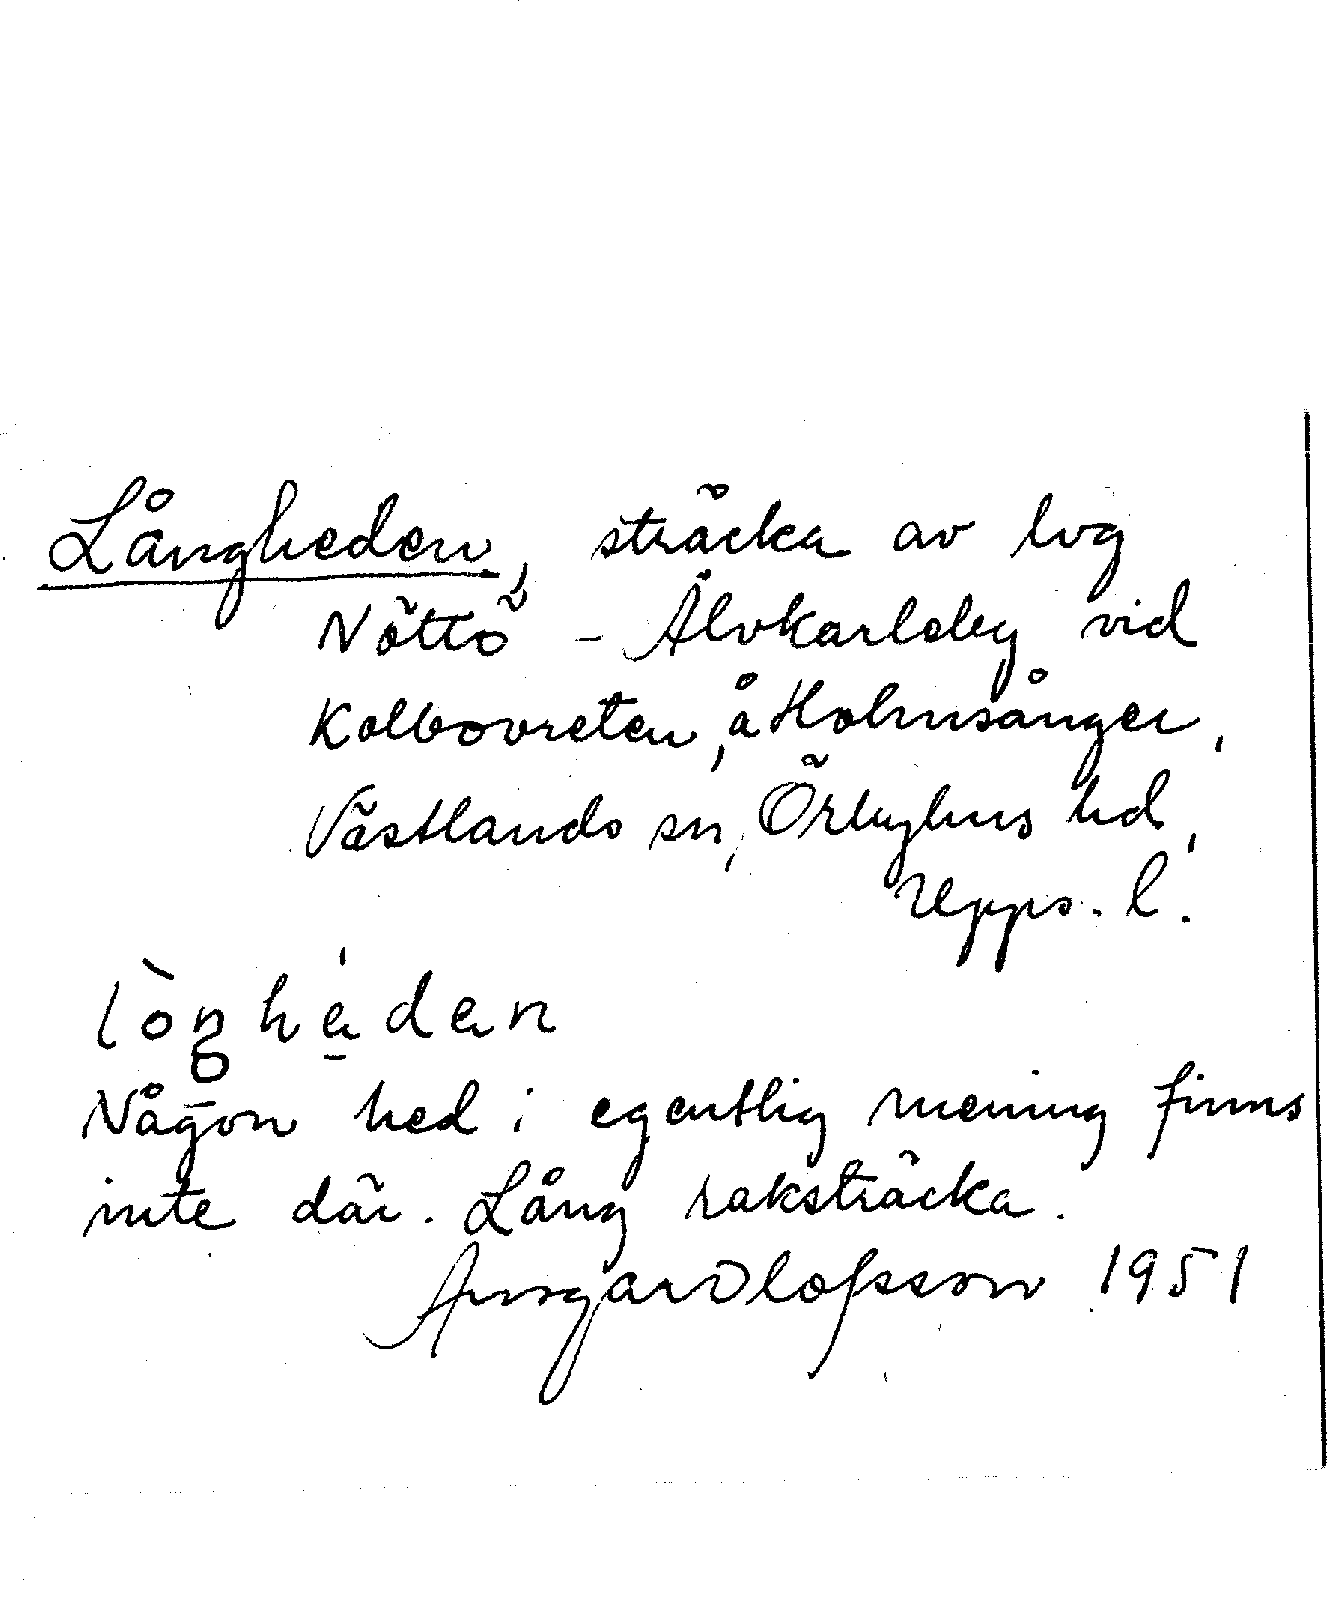 Långheden, sträcka av lvg
Nöttö - Älvkarleby vid
Kolbovreten, å Holmsånger,
Västlands sn, Örbyhus hd,
Upps. l.
lòŋha̱̍dan
Någon hed i egentlig mening finns
inte där. Lång raksträcka.
Ansgar Olofsson 1951